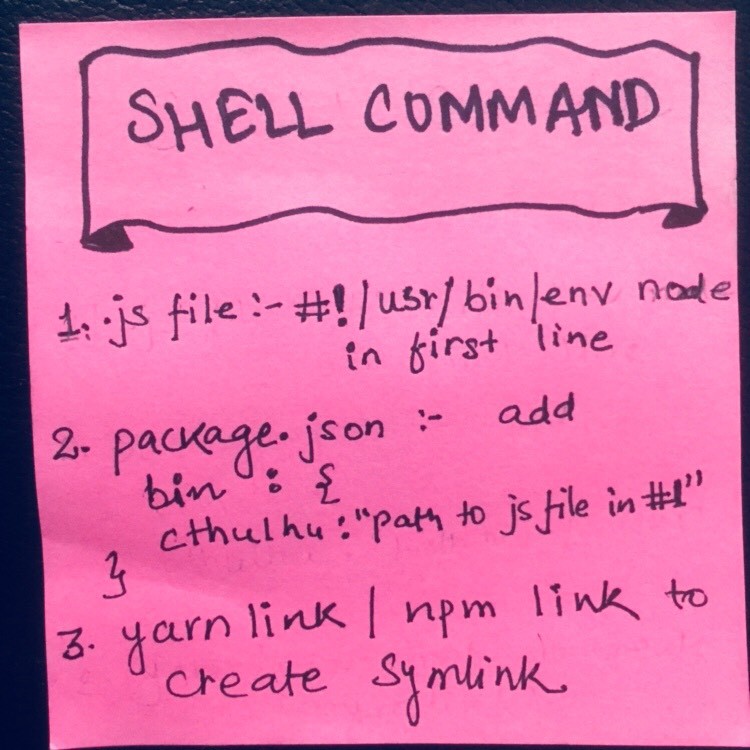 SHELL COMMAND
1. .js file :- #!/usr/bin/env node
in first line
2. package.json :- add
bin : {
cthulhu : "path to js file in #1"
}
3. yarn link | npm link to
create symlink.